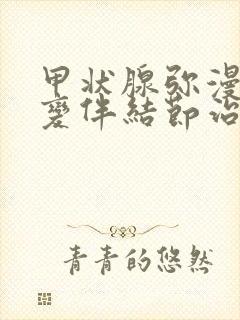 甲状腺弥漫
变伴結節治
青青的悠然